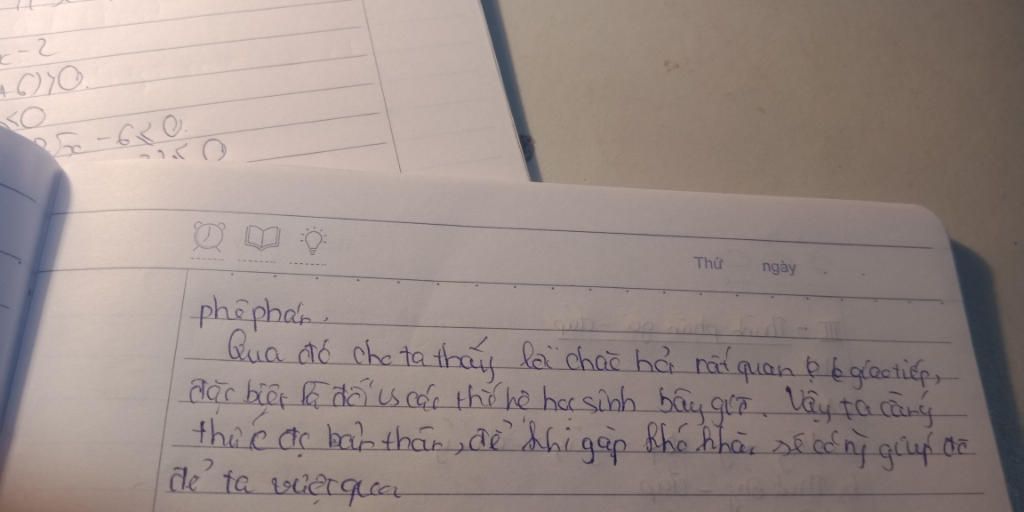 x - 2
+ 6) > 0.
≤ 0
5x - 6 ≤ 0.
≤ 0
Thứ ngày
phê phán.
Qua đó cho ta thấy lời chào hỏi rất quan giao tiếp,
đặc biệt là đối vs các thế hệ học sinh bây giờ. Vậy ta càng
thức đc bản thân, để khi gặp khó khăn sẽ có ng giúp đỡ
để ta vượt qua